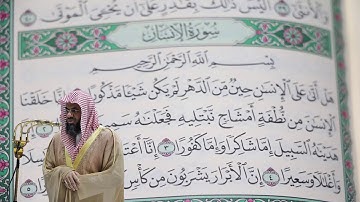 وَٱلْأُنثَىٰٓ ٣٩ أَلَيْسَ ذَٰلِكَ بِقَٰدِرٍ عَلَىٰٓ أَن يُحْـِۧىَ ٱلْمَوْتَىٰ
سُورَةُ الإِنسَانِ
بِسْمِ ٱللَّهِ ٱلرَّحْمَٰنِ ٱلرَّحِيمِ
هَلْ أَتَىٰ عَلَى ٱلْإِنسَٰنِ حِينٌ مِّنَ ٱلدَّهْرِ لَمْ يَكُن شَيْـًٔا مَّذْكُورًا ١ إِنَّا خَلَقْنَا
ٱلْإِنسَٰنَ مِن نُّطْفَةٍ أَمْشَاجٍ نَّبْتَلِيهِ فَجَعَلْنَٰهُ
هَدَيْنَٰهُ ٱلسَّبِيلَ إِمَّا شَاكِرًا وَإِمَّا كَفُورًا ٣ إِنَّآ
وَأَغْلَٰلًا وَسَعِيرًا ٤ إِنَّ ٱلْأَبْرَارَ يَشْرَبُونَ مِن كَأْسٍ